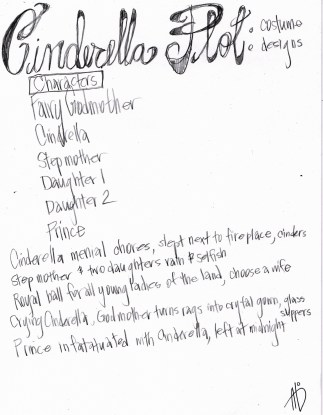 Cinderella Plot: costume designs
Characters
Fairy Godmother
Cinderella
Stepmother
Daughter 1
Daughter 2
Prince
Cinderella menial chores, slept next to fireplace, cinders
Stepmother & two daughters vain & selfish
Royal ball for all young ladies of the land, choose a wife
Crying Cinderella, Godmother turns rags into crystal gown, glass slippers
Prince infatuated with Cinderella, left at midnight